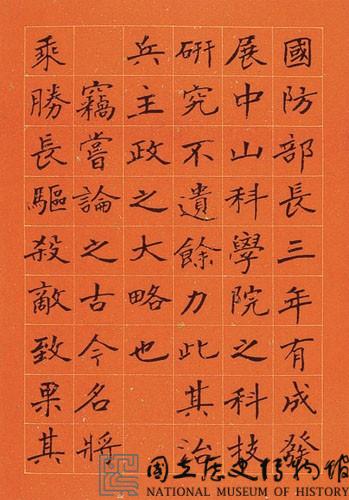 國防部長三年有成發
展中山科學院之科技
研究不遺餘力此其治
兵主政之大略也
竊嘗論之古今名將
乘勝長驅殺敵致果其
國立歷史博物館
NATIONAL MUSEUM OF HISTORY